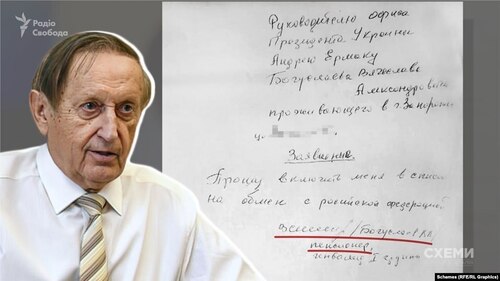 Радіо
Свобода
Руководителю офиса
Президента Украины
Андрею Ермаку
Богуслаева Вячеслава
Александровича
проживающего в г. Запорожье
Заявление.
Прошу включить меня в список
на обмен с российской федерацией
/Богуслаев В.А.
пенсионер,
инвалид I группы
СХЕМИ
Schemes (RFE/RL Graphics)